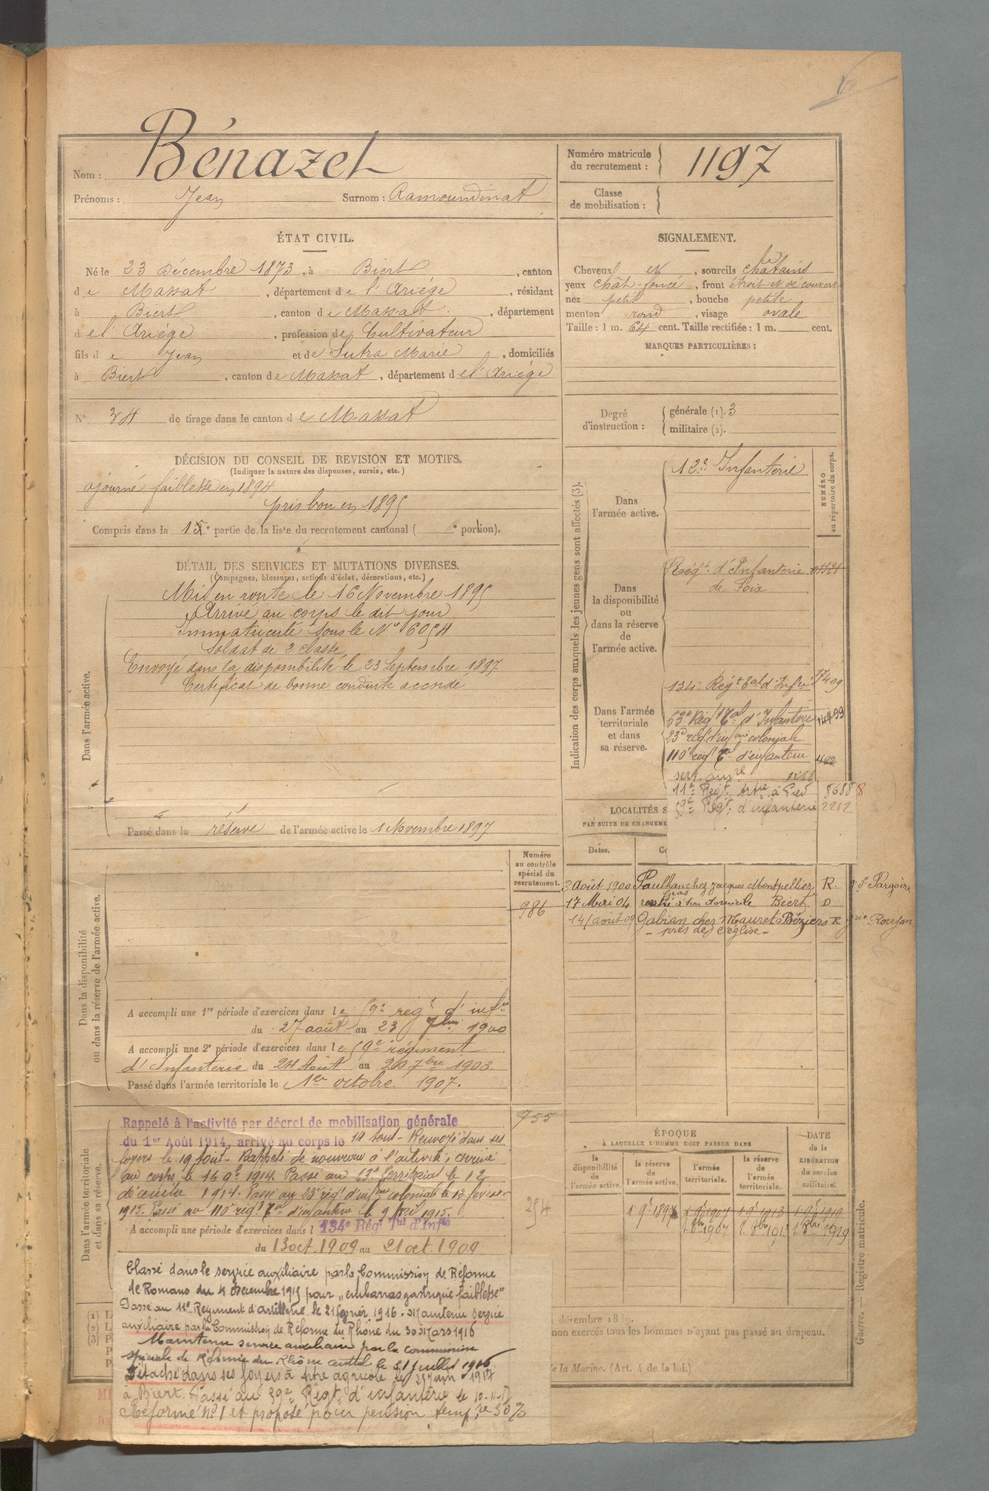 Nom : Bénazet
Prénoms : Jean Surnom : Ramoundinat
Numéro matricule du recrutement : 1197
Classe de mobilisation :
ÉTAT CIVIL.
Né le 23 Décembre 1873, à Biert, canton
de Massat, département de l'Ariège, résidant
à Biert, canton de Massat, département
de l'Ariège, profession de Cultivateur
fils de Jean et de Sutra Marie, domiciliés
à Biert, canton de Massat, département de l'Ariège
N° 34 de tirage dans le canton de Massat
SIGNALEMENT.
Cheveux et, sourcils châtains
yeux chât-foncé, front étroit et découvert
nez petit, bouche petite
menton rond, visage ovale
Taille : 1 m. 64 cent. Taille rectifiée : 1 m. cent.
MARQUES PARTICULIÈRES :
Degré d'instruction : générale (1). 3
militaire (2).
DÉCISION DU CONSEIL DE REVISION ET MOTIFS.
(Indiquer la nature des dispenses, sursis, etc.)
ajourné faiblesse en 1894
pris bon en 1895
Compris dans la 1e partie de la liste du recrutement cantonal ( e portion).
DÉTAIL DES SERVICES ET MUTATIONS DIVERSES.
(Campagnes, blessures, actions d'éclat, décorations, etc.)
Dans l'armée active.
Mis en route le 16 Novembre 1895
Arrivé au corps le dit jour
Immatriculé sous le N° 6054
Soldat de 2 classe
Envoyé dans la disponibilité le 23 Septembre 1897
Certificat de bonne conduite accordé
Passé dans la réserve de l'armée active le 1 Novembre 1897
Indication des corps auxquels les jeunes gens sont affectés (3).
NUMÉRO au répertoire du corps.
Dans l'armée active.
12e Infanterie
Dans la disponibilité ou dans la réserve de l'armée active.
Régt d'Infanterie
de Foix
Dans l'armée territoriale et dans sa réserve.
134e Régt tal d'Infrie 17409
53e Régt tal d'Infanterie
23e rég d'infrie coloniale
110e régt tal d'infanterie 402
serv. auxre
11e Régt artie à pied
Régt d'infanterie 2212
LOCALITÉS S
PAR SUITE DE CHANGEME
Dates.
3 Août 1900 Paulhan chez Jacques Montpellier R
17 Mai 04 rentré à son domicile Biert D
14 août 09 Gabian chez Mauret Béziers R
près de l'église
Numéro au contrôle spécial du recrutement.
986
Dans la disponibilité ou dans la réserve de l'armée active.
A accompli une 1re période d'exercices dans le 59e régt d'infrie
du 27 août au 23 7bre 1900
A accompli une 2e période d'exercices dans le 59e régiment
d'Infanterie du 24 Août au 20 7bre 1903.
Passé dans l'armée territoriale le 1er octobre 1907.
755
Dans l'armée territoriale et dans sa réserve.
Rappelé à l'activité par décret de mobilisation générale
du 1er Août 1914, arrivé au corps le Août - Renvoyé dans ses
foyers le 19 Août - Rappelé de nouveau à l'activité; arrivé
au corps le 16 1914. Passé au 53e territorial le 12
décembre 1914. Passé au 23e rég d'infrie coloniale le 13 février
1915. Passé au 110e régt tal d'infanterie le 9 1915.
A accompli une période d'exercices dans l 134e Régt Tal d'Infie
du 13 oct 1909 au 21 oct 1909
254
Classé dans le service auxiliaire par la Commission de Réforme
de Romans du 4 décembre 1915 pour "embarras gastrique faiblesse"
Passé au 11e Régiment d'artillerie le 21 février 1916. Maintenu service
auxiliaire par la Commission de Réforme du Rhône du 30 Mars 1916
Maintenu service auxiliaire par la commission
spéciale de Réforme du Rhône du 21 juillet 1916
Détaché dans ses foyers à titre agricole le juin 1917
à Biert. Passé au 39e Régt d'infanterie le
Réformé N° 1 et proposé pour pension
ÉPOQUE
À LAQUELLE L'HOMME DOIT PASSER DANS
la disponibilité de l'armée active.
la réserve de l'armée active.
l'armée territoriale.
la réserve de l'armée territoriale.
DATE DE LA LIBÉRATION du service militaire.
décembre 18
non exercés tous les hommes n'ayant pas passé au drapeau.
de la Marine. (Art. 4 de la loi.)
Guerre. — Registre matricule.